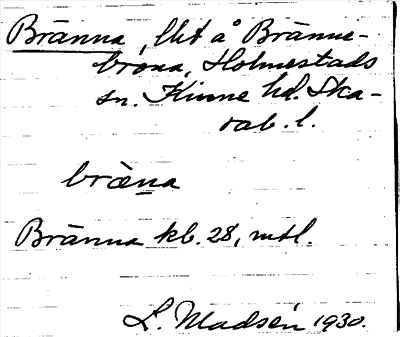 Bränna, lht å Bränne-
brona, Holmestads
sn. Kinne hd. Ska-
rab. l.
bràna
Bränna kb. 28, mtl.
L. Madsén 1930.